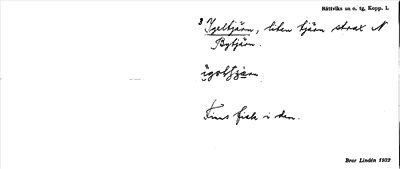 Rättviks sn o. tg, Kopp. l.
3 Igeltjärn, liten tjärn strax N
Bytjärn.
Finns fisk i den.
Bror Lindén 1932